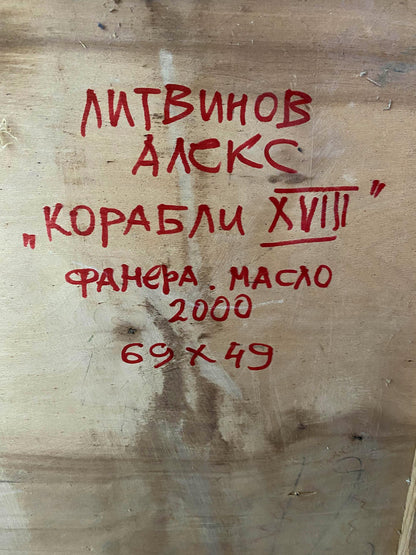 ЛИТВИНОВ
АЛЕКС
„КОРАБЛИ XVIII"
ФАНЕРА. МАСЛО
2000
69 х 49